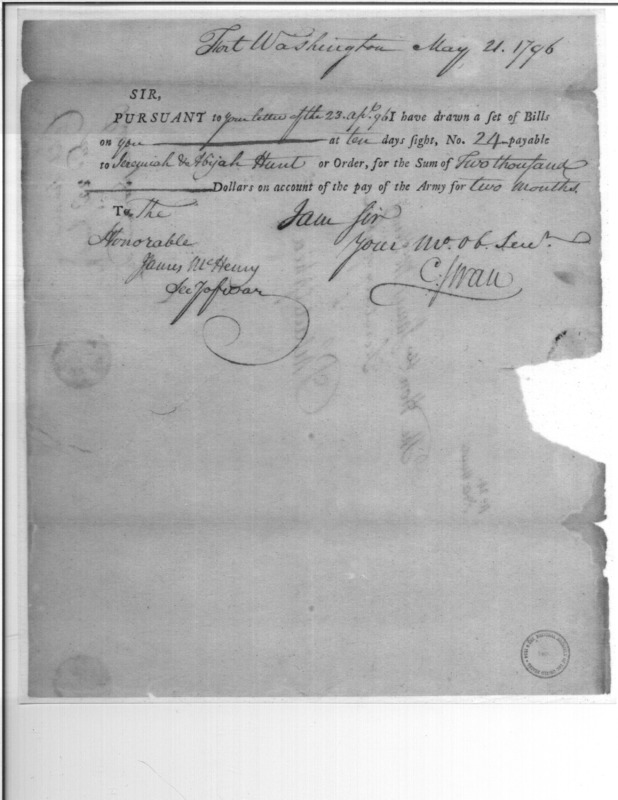 Fort Washington May 21. 1796
SIR,
PURSUANT to your letter of the 23. apl. 96 I have drawn a set of Bills
on you at ten days sight, No. 24 payable
to Jeremiah & Abijah Hunt or Order, for the Sum of Two thousand
Dollars on account of the pay of the Army for two months.
To The
I am Sir
Honorable
Your Mo. Ob. Serv.
James McHenry
C. Swan
Secy of war